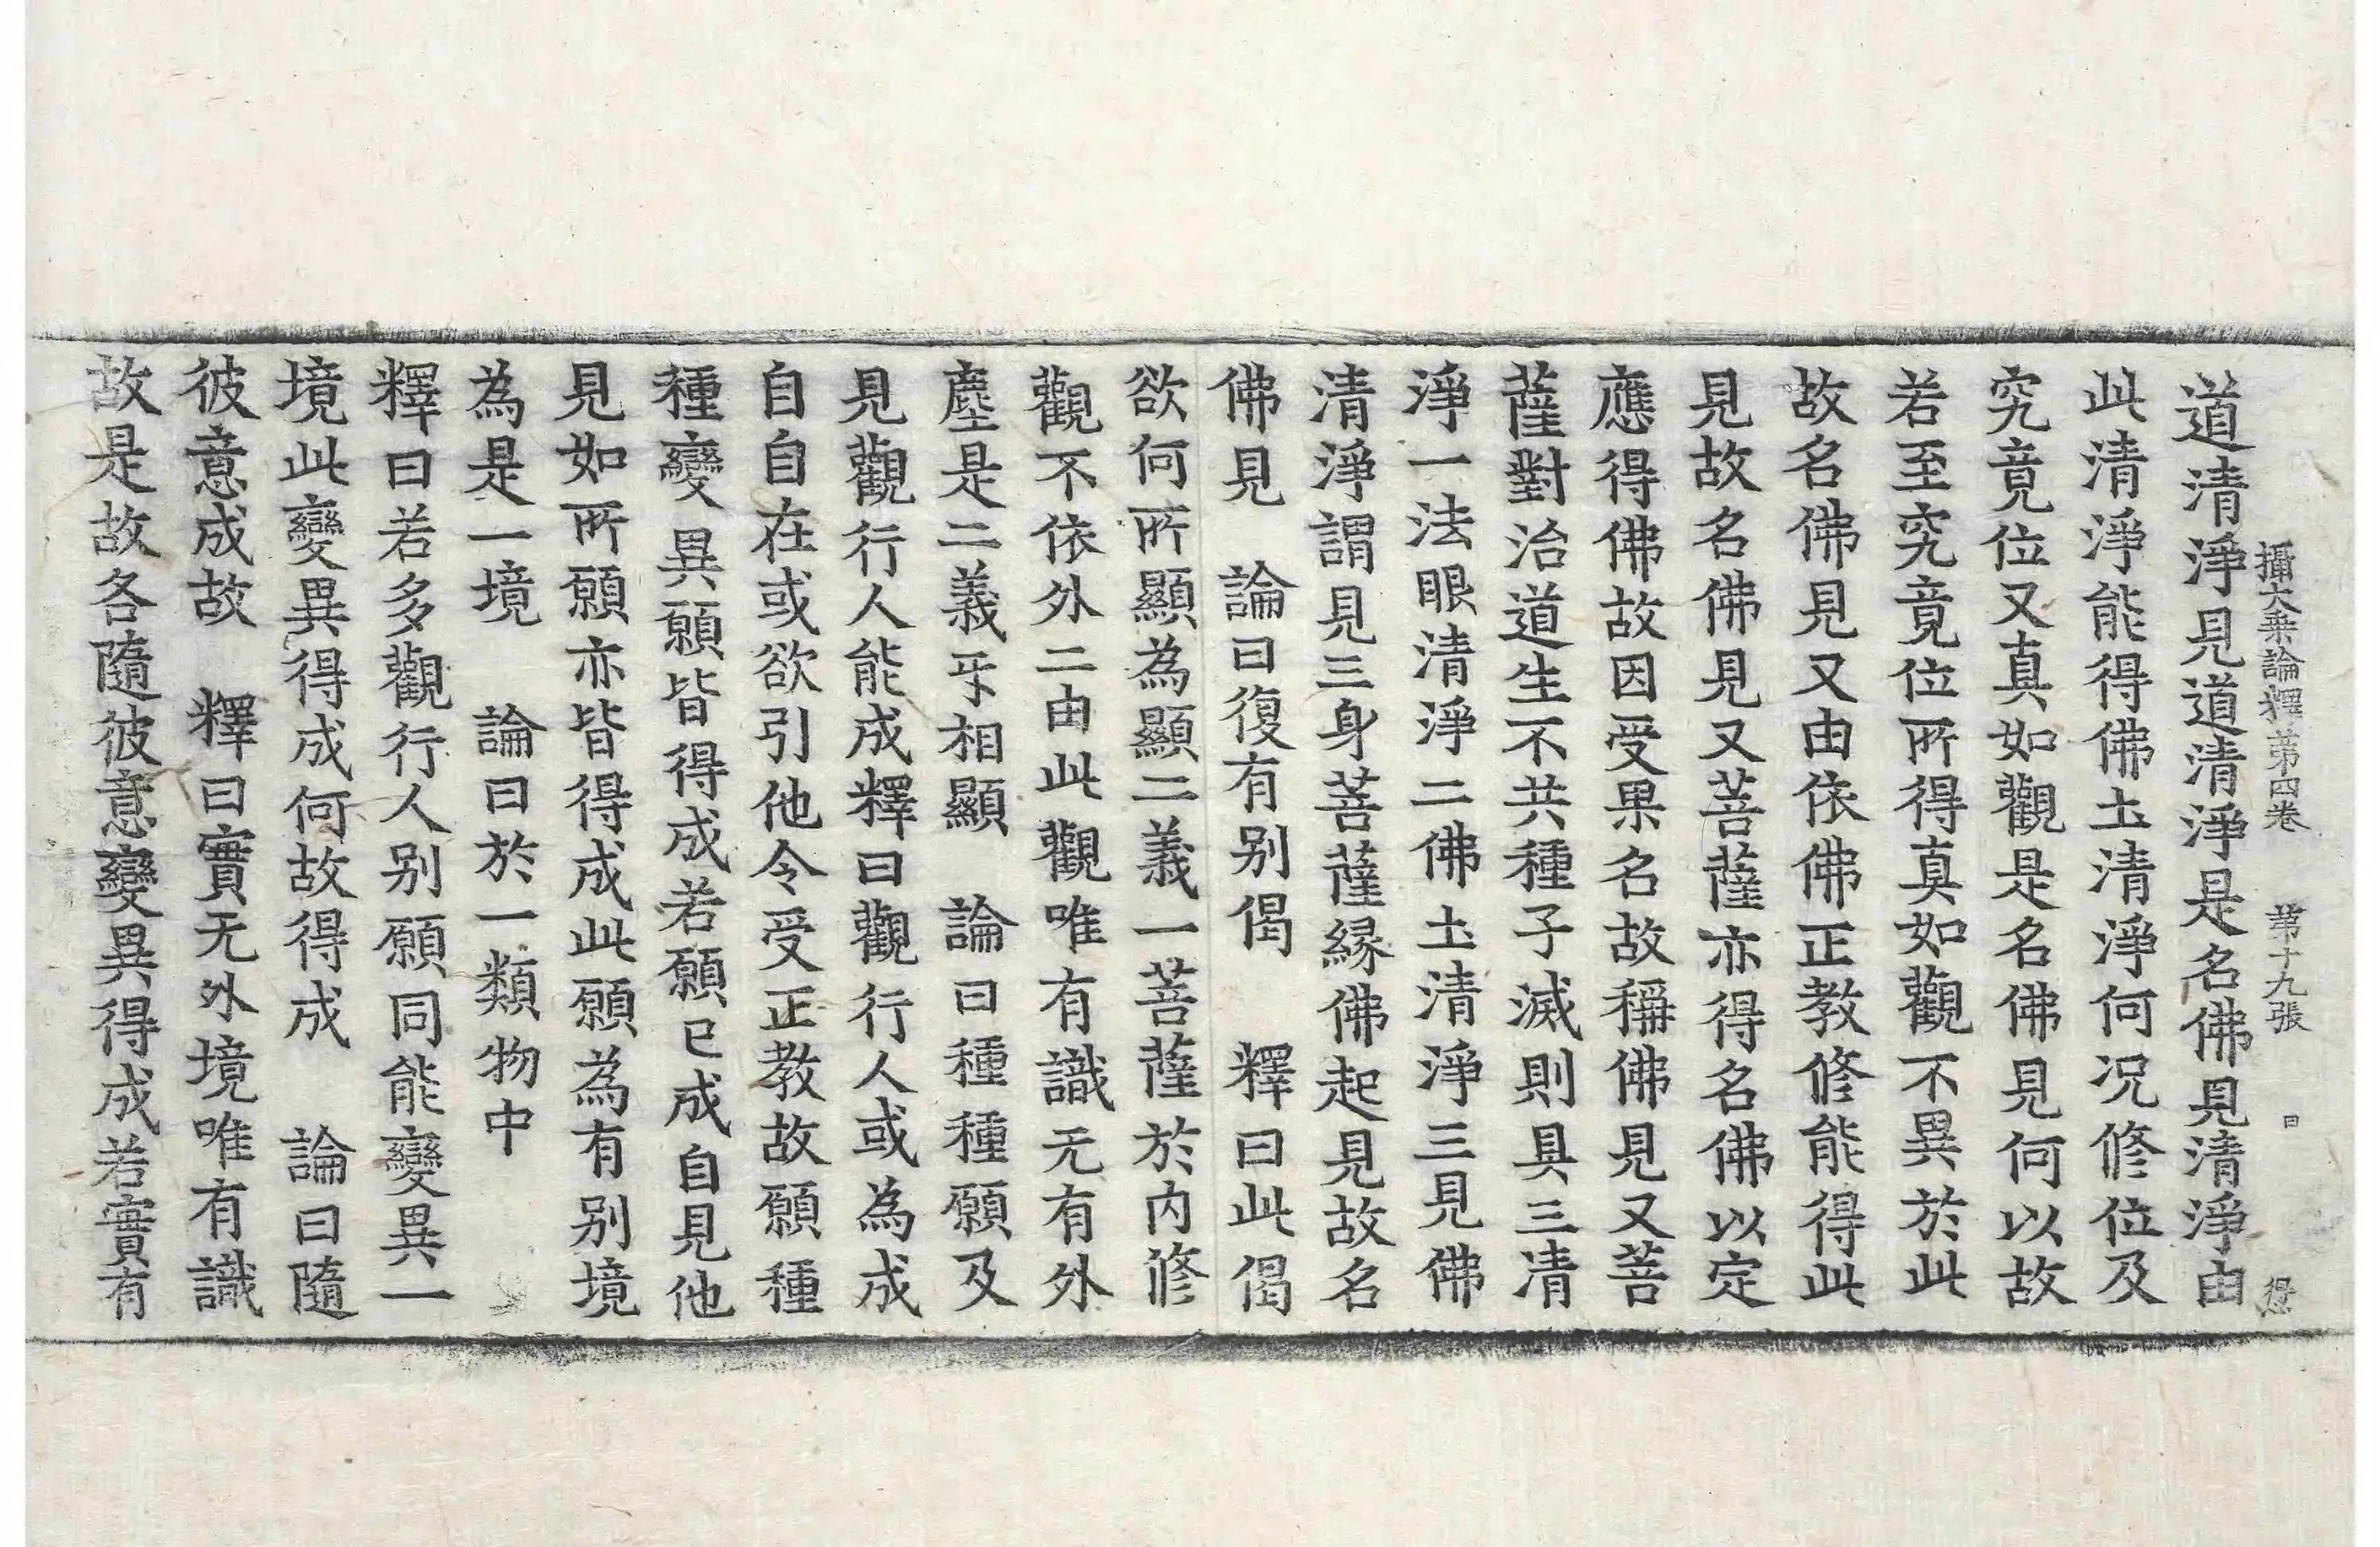 攝大乗論釋苐四卷　苐十九張　曰　得
道清淨見道清淨是名佛見清淨由
此清淨能得佛土清淨何況修位及
究竟位又真如觀是名佛見何以故
若至究竟位所得真如觀不異於此
故名佛見又由依佛正教修能得此
見故名佛見又菩薩亦得名佛以定
應得佛故因受果名故稱佛見又菩
薩對治道生不共種子滅則具三清
淨一法眼清淨二佛土清淨三見佛
清淨謂見三身菩薩緣佛起見故名
佛見　論曰復有别偈　釋曰此偈
欲何所顯為顯二義一菩薩於内修
觀不依外二由此觀唯有識无有外
塵是二義㸦相顯　論曰種種願及
見觀行人能成釋曰觀行人或為成
自自在或欲引他令受正教故願種
種變異願皆得成若願已成自見他
見如所願亦皆得成此願為有别境
為是一境　論曰於一類物中
釋曰若多觀行人别願同能變異一
境此變異得成何故得成　論曰隨
彼意成故　釋曰實无外境唯有識
故是故各隨彼意變異得成若實有